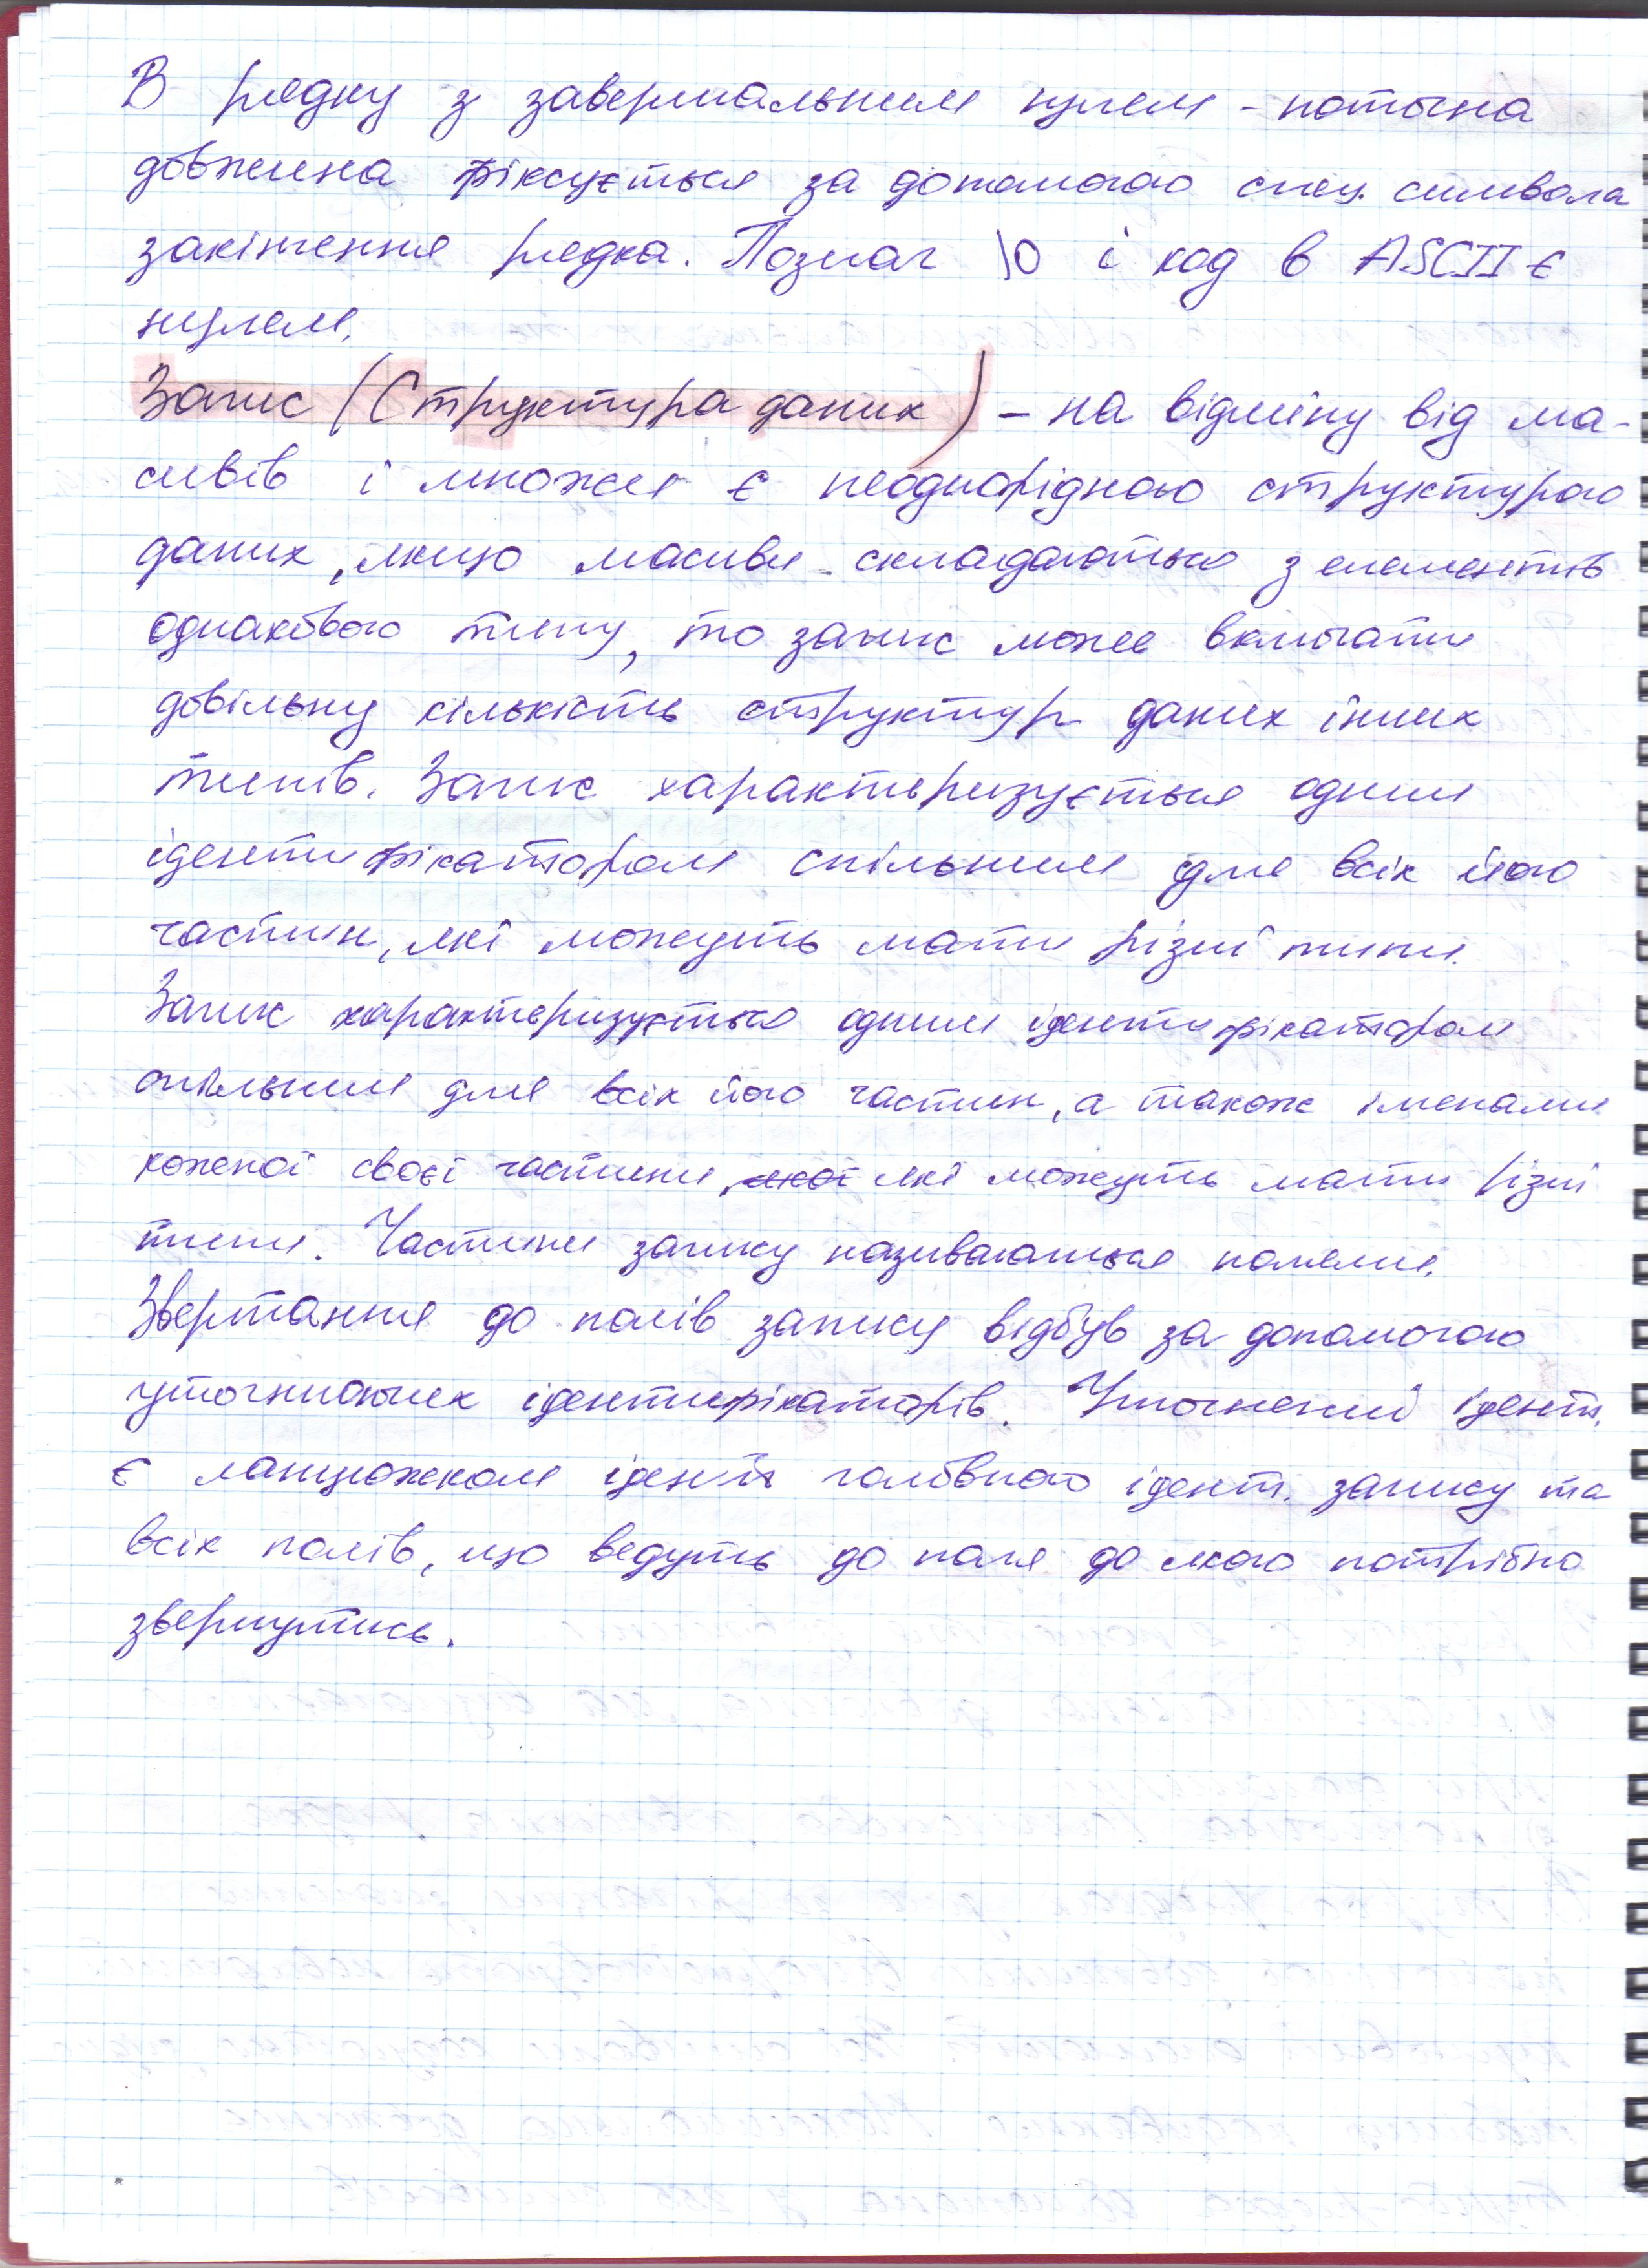 В рядку з завершальним нулем - поточна
довжина фіксується за допомогою спец. символа
закінчення рядка. Познач \0 і код в ASCII є
нулем.
Запис (Структура даних) - на відміну від ма-
сивів і множин є неоднорідною структурою
даних, якщо масиви складаються з елементів
однакового типу, то запис може включати
довільну кількість структур даних інших
типів. Запис характеризується одним
ідентифікатором спільним для всіх його
частин, які можуть мати різні типи.
Запис характеризується одним ідентифікатором
спільним для всіх його частин, а також іменами
кожної своєї частини, які можуть мати різні
типи. Частини запису називаються полями.
Звертання до полів запису відбув за допомогою
уточнюючих ідентифікаторів. Уточнений ідент.
є ланцюжком ідент головного ідент. запису та
всіх полів, що ведуть до поля до якого потрібно
звернутись.